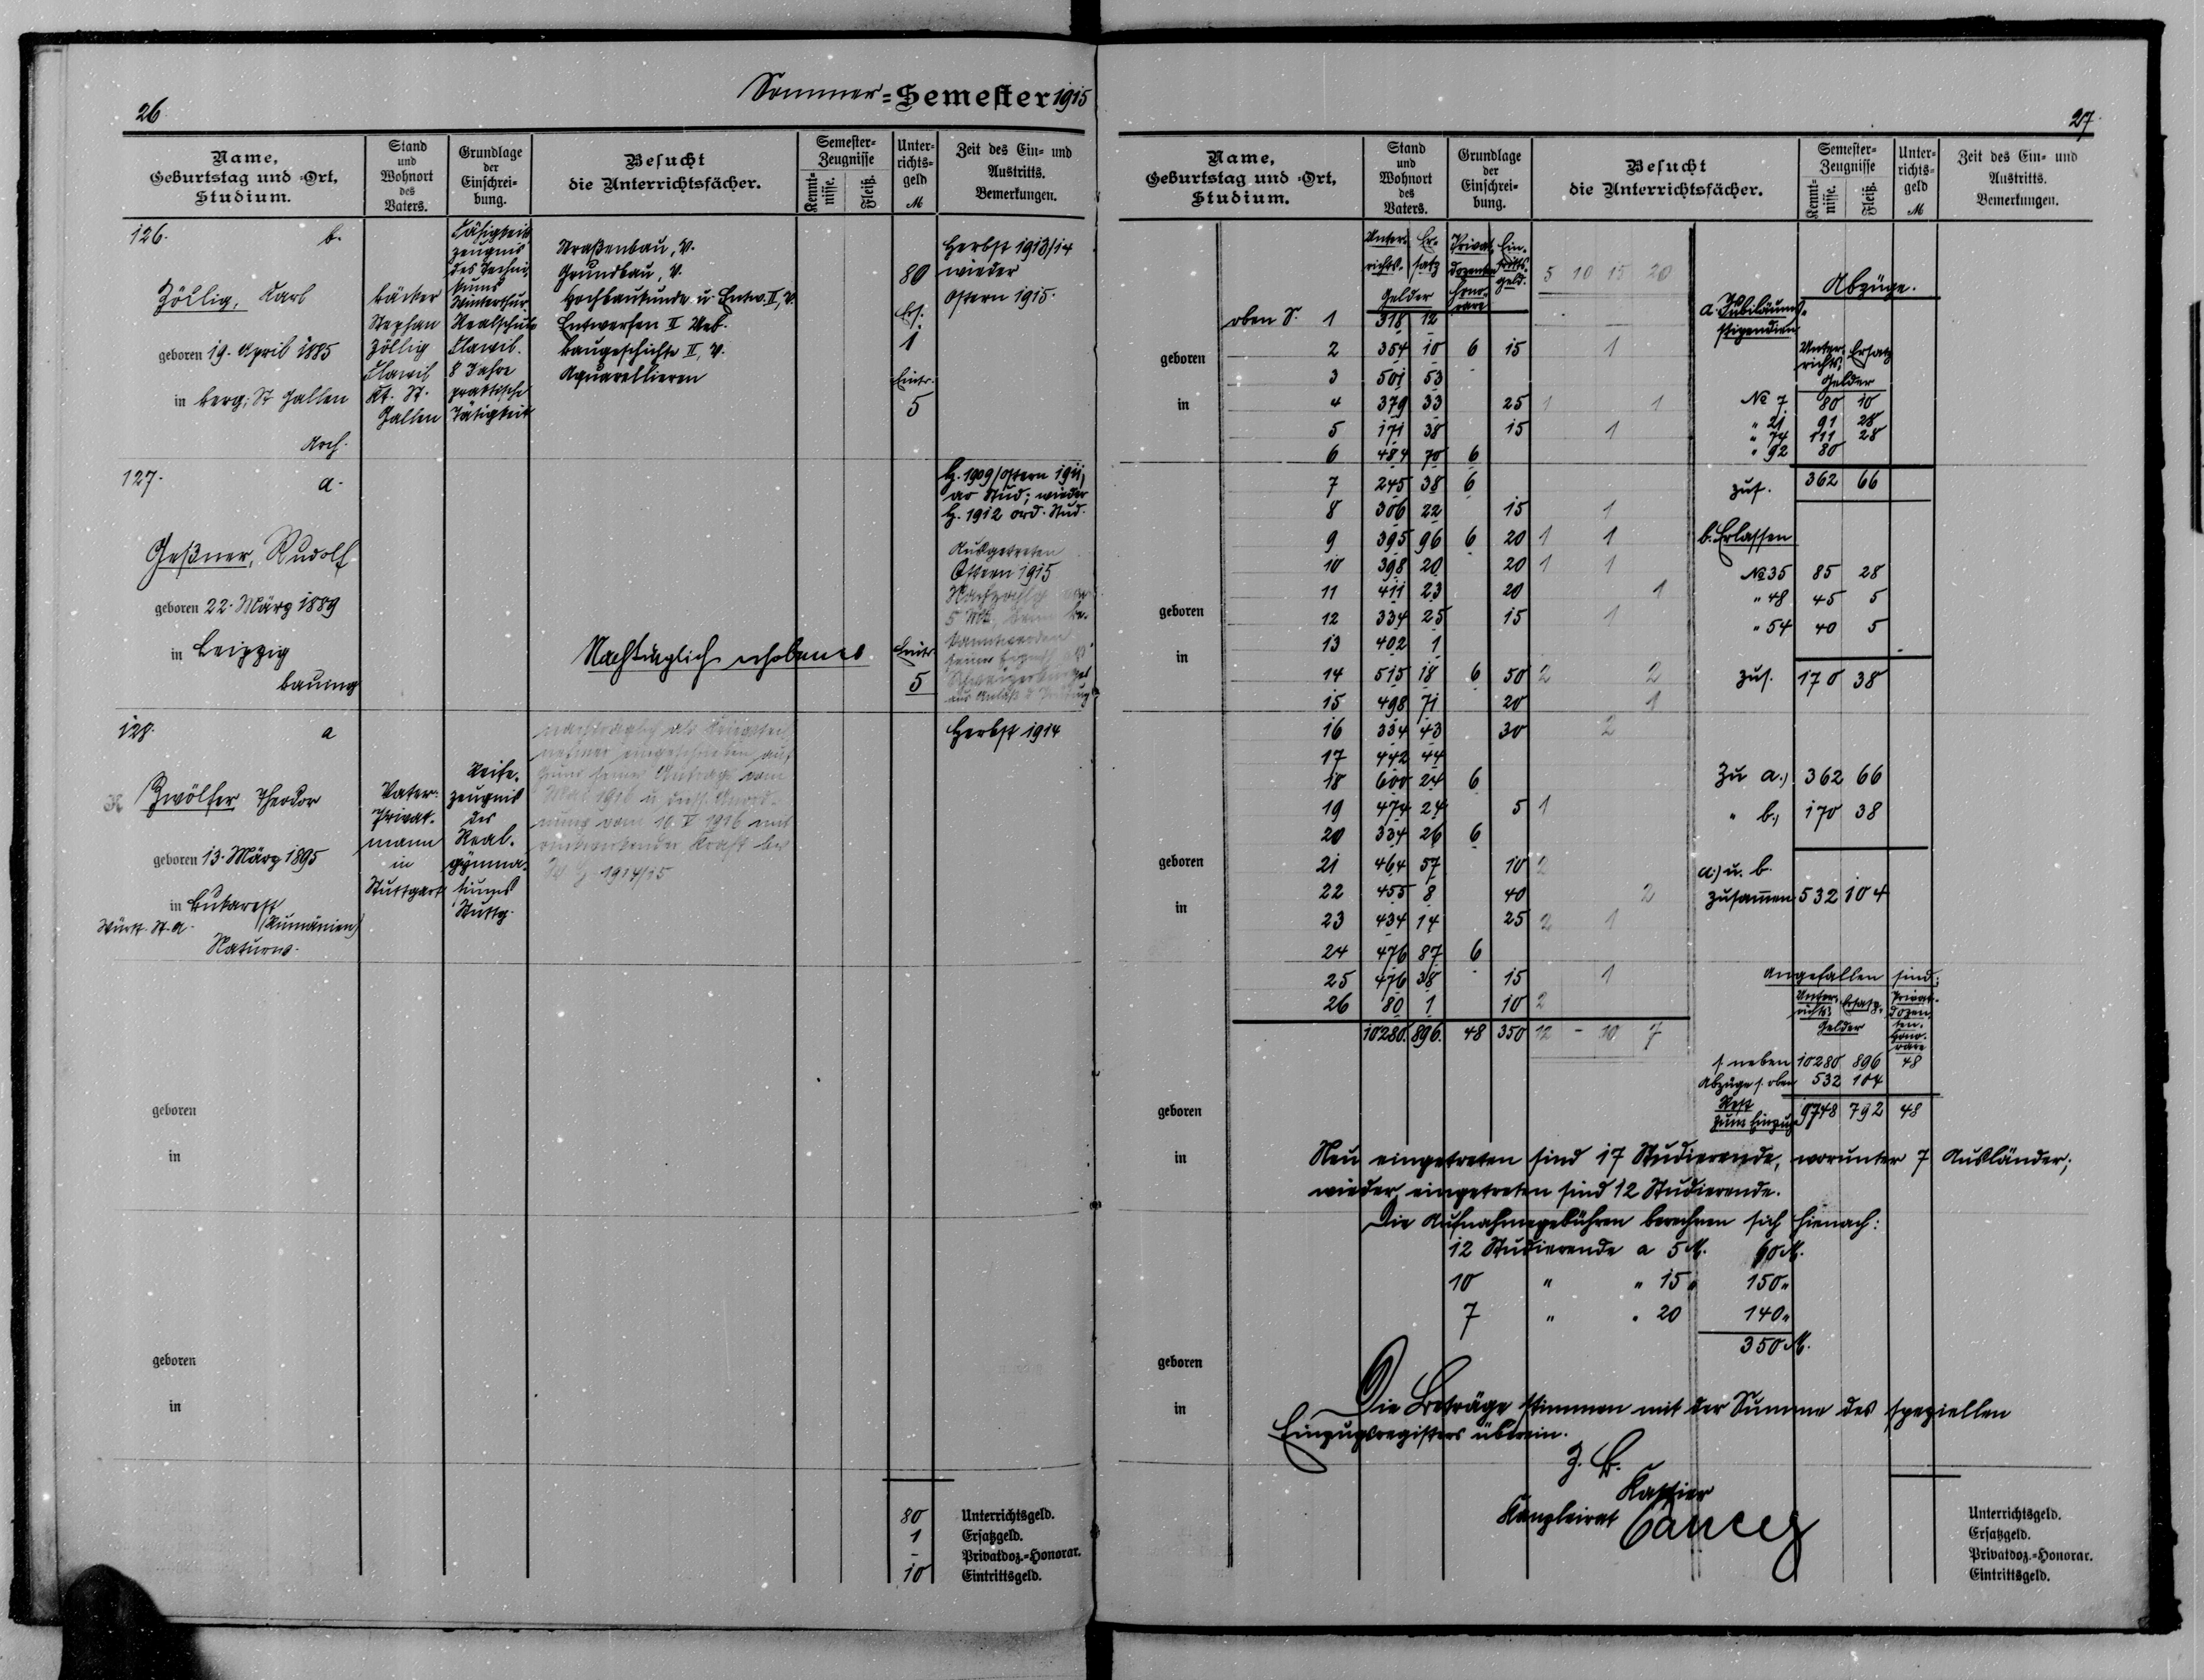 26
Sommer-Semester 1915
Name, Geburtstag und -Ort, Studium.
Stand und Wohnort des Vaters.
Grundlage der Einschreibung.
Besucht die Unterrichtsfächer.
Semester-Zeugnisse
Kenntnisse.
Fleiß.
Unterrichtsgeld
M
Zeit des Ein- und Austritts. Bemerkungen.
126.
b.
Zöllig, Karl
geboren 19. April 1885
in Berg, St Gallen
Arch.
Bäcker
Stephan
Zöllig
Flawil
Kt. St.
Gallen
Fähigkeits
zeugnis
des Techni
kums
Winterthur
Realschule
Flawil.
8 Jahre
praktische
Tätigkeit
Straßenbau, V.
Grundbau, V.
Hochbaukunde u. Entw. II, V.
Entwerfen II Ueb.
Baugeschichte II, V.
Aquarellieren
80
Ers.
1
Eintr.
5
Herbst 1913/14
wieder
Ostern 1915.
127.
a.
Geßner, Rudolf
geboren 22. März 1889
in Leipzig
Bauing
Nachträglich erhobenes
Eintr.
5
H. 1909/Ostern 1911,
ao Stud; wieder
H. 1912 ord. Stud.
Ausgetreten
Ostern 1915
128.
a
Zwölfer Theodor
geboren 13. März 1895
in Bukarest
Württ. St. A. (Rumänien)
Naturw.
Vater:
Privat-
mann
in
Stuttgart
Reife-
zeugnis
des
Real-
gymna-
siums
Stuttg.
nachträglich als Kriegsteil
nehmer eingeschrieben auf
Grund seines Antrags vom
Mai 1916 u. diess. Anord-
nung vom 10. V 1916 mit
rückwirkender Kraft bes
W H 1914/15
Herbst 1914
geboren
in
geboren
in
80 Unterrichtsgeld.
1 Ersatzgeld.
- Privatdoz.-Honorar.
10 Eintrittsgeld.
27.
Name, Geburtstag und -Ort, Studium.
Stand und Wohnort des Vaters.
Grundlage der Einschreibung.
Besucht die Unterrichtsfächer.
Semester-Zeugnisse
Kenntnisse.
Fleiß.
Unterrichtsgeld
M
Zeit des Ein- und Austritts. Bemerkungen.
Unterrichts- Ersatz Gelder
Privat dozenten honorare
Eintrittsgeld.
5 10 15 20
oben S. 1 318 12
2 354 10 6 15 1
3 501 53
4 379 33 25 1 1
5 171 38 15 1
6 484 70 6
7 245 38 6
8 306 22 15 1
9 395 96 6 20 1 1
10 398 20 20 1 1
11 411 23 20 1
12 334 25 15 1
13 402 1
14 515 18 6 50 2 2
15 498 71 20 1
16 334 43 30 2
17 442 44
18 600 24 6
19 474 24 5 1
20 334 26 6
21 464 57 10 2
22 455 8 40 2
23 434 14 25 2 1
24 476 87 6
25 476 38 15 1
26 80 1 10 2
10280. 896. 48 350 12 - 10 7
geboren
in
geboren
in
geboren
in
geboren
in
geboren
in
Abzüge.
a. Jubiläums-
stipendien
Unterrichts- Ersatz
Gelder
No 7 80 10
" 21 91 28
" 74 111 28
" 92 80
zus. 362 66
b. Erlassen
No 35 85 28
" 48 45 5
" 54 40 5
zus. 170 38
Zu a.) 362 66
" b.) 170 38
a.) u. b.
zusamen 532 104
Angefallen sind:
Unterrichts- Ersatz- Gelder
Privatdozenten-Honorare
s neben 10280 896 48
Abzüge s. oben 532 104
Rest
zum Einzug 9748 792 48
Neu eingetreten sind 17 Studierende, worunter 7 Ausländer;
wieder eingetreten sind 12 Studierende.
Die Aufnahmegebühren berechnen sich hienach:
12 Studierende a 5 M. 60 M.
10 " " 15 " 150 "
7 " " 20 140 "
350 M.
Die Beträge stimmen mit der Summe des speziellen
Einzugsregisters überein.
Z. B.
Kassier
Kanzleirat
Unterrichtsgeld.
Ersatzgeld.
Privatdoz.-Honorar.
Eintrittsgeld.